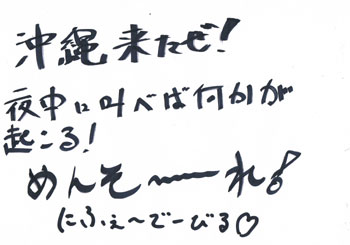 沖縄来たぜ!
夜中に叫べば何かが
起こる!
めんそ〜〜れ!
にふぇ〜でーびる♡